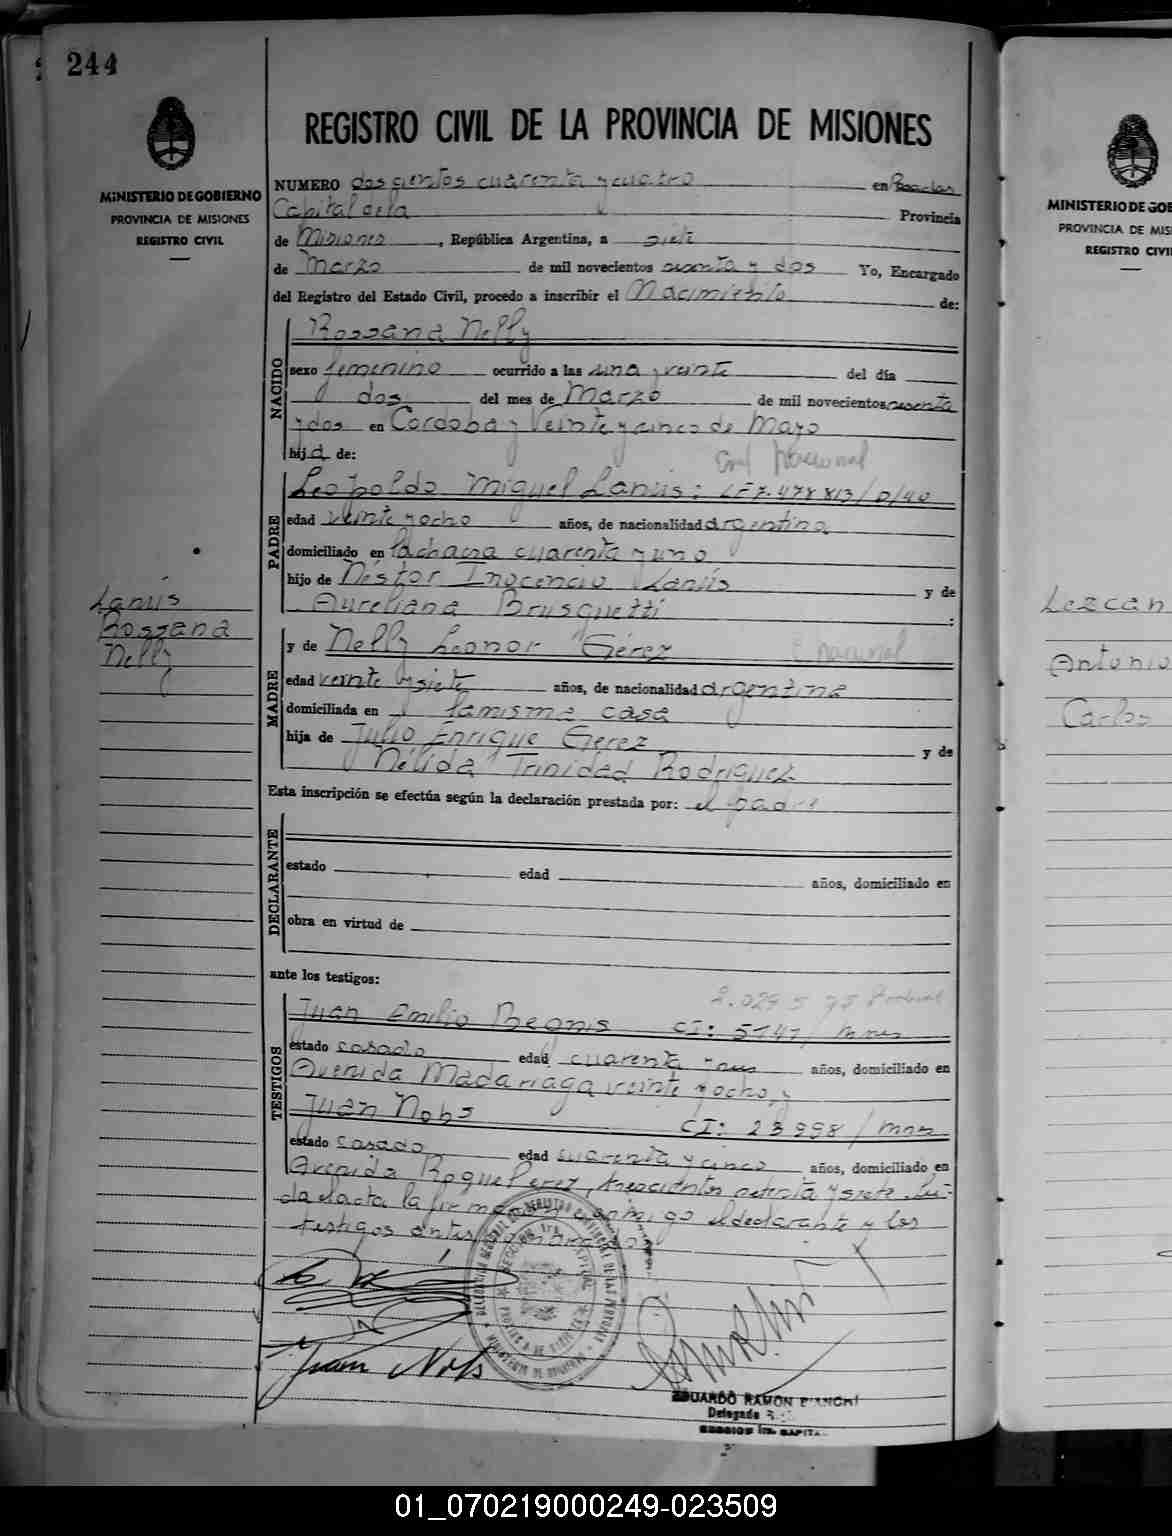 244
MINISTERIO DE GOBIERNO
PROVINCIA DE MISIONES
REGISTRO CIVIL
Lanús
Rossana
Nelly
REGISTRO CIVIL DE LA PROVINCIA DE MISIONES
NUMERO doscientos cuarenta y cuatro en Posadas
Capital de la Provincia
de Misiones, República Argentina, a siete
de Marzo de mil novecientos sesenta y dos Yo, Encargado
del Registro del Estado Civil, procedo a inscribir el Nacimiento de:
NACIDO
Rossana Nelly
sexo femenino ocurrido a las una y veinte del día
dos del mes de Marzo de mil novecientos sesenta
y dos en Cordoba y Veinte y cinco de Mayo
hija de:
Nacional
PADRE
Leopoldo Miguel Lanús: LE 7.478813/D/40
edad veinte y ocho años, de nacionalidad argentina
domiciliado en la chacra cuarenta y uno
hijo de Néstor Inocencio Lanús y de
Aureliana Brusquetti :
MADRE
y de Nelly Leonor Gérez
Nacional
edad veinte y siete años, de nacionalidad argentina
domiciliada en la misma casa
hija de Julio Enrique Gerez y de
Nélida Trinidad Rodriguez
Esta inscripción se efectúa según la declaración prestada por: el padre
DECLARANTE
estado edad años, domiciliado en
obra en virtud de
ante los testigos:
TESTIGOS
Juan Emilio Regnis CI: 5747/ Mnes
estado casado edad cuarenta y años, domiciliado en
Avenida Madariaga veinte y ocho, y
Juan Nobs CI: 23998/ Mnes
estado casado edad cuarenta y cinco años, domiciliado en
Avenida Roque Perez, trescientos setenta y siete. Leí-
da el acta la firman conmigo el declarante y los
testigos antes nombrados
Juan Nobs
EDUARDO RAMON BIANCHI
Delegado
SECCION 1ra. CAPITAL
MINISTERIO DE GOB
PROVINCIA DE MIS
REGISTRO CIVI
Lezcan
Antonio
Carlos
01_070219000249-023509